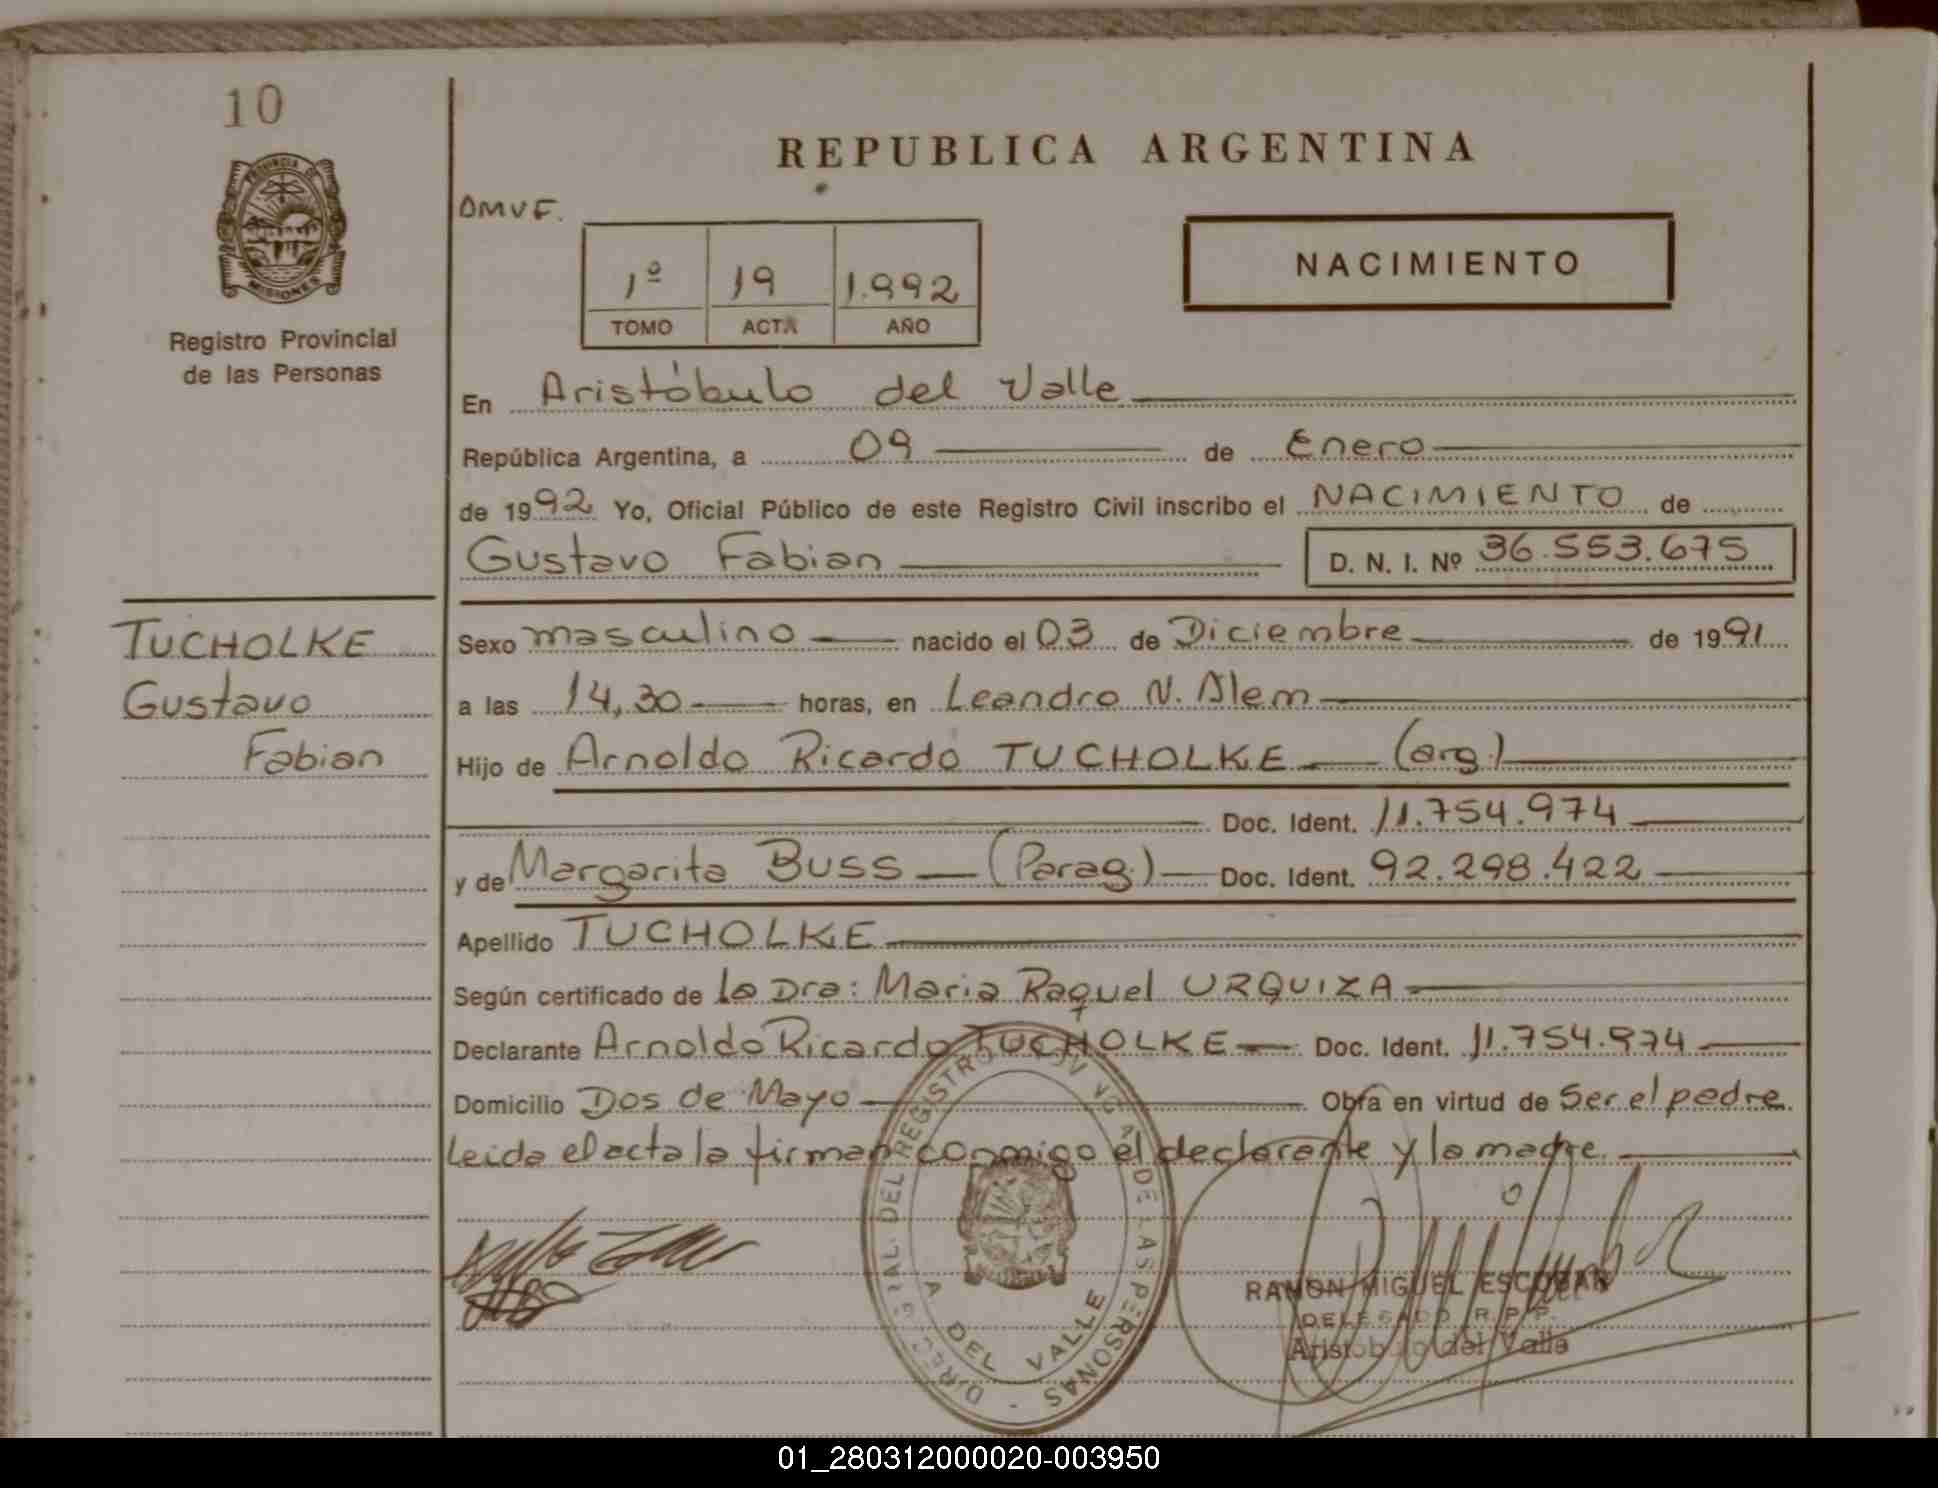 10
PROVINCIA DE
MISIONES
Registro Provincial
de las Personas
TUCHOLKE
Gustavo
Fabian
REPUBLICA ARGENTINA
DMVF.
1º 19 1.992
TOMO ACTA AÑO
NACIMIENTO
En Aristóbulo del Valle
República Argentina, a 09 de Enero
de 1992 Yo, Oficial Público de este Registro Civil inscribo el NACIMIENTO de
Gustavo Fabian D. N. I. Nº 36.553.675
Sexo masculino nacido el 03 de Diciembre de 1991
a las 14,30 horas, en Leandro N. Alem
Hijo de Arnoldo Ricardo TUCHOLKE (arg.)
Doc. Ident. 11.754.974
y de Margarita BUSS (Parag.) Doc. Ident. 92.298.422
Apellido TUCHOLKE
Según certificado de la Dra: Maria Raquel URQUIZA
Declarante Arnoldo Ricardo TUCHOLKE Doc. Ident. 11.754.974
Domicilio Dos de Mayo Obra en virtud de Ser el padre.
Leida el acta la firman conmigo el declarante y la madre.
DEL REGISTRO DE LAS PERSONAS
A DEL VALLE
RAMON MIGUEL ESCOBAR
DELEGADO R.P.P.
Aristobulo del Valle
01_280312000020-003950